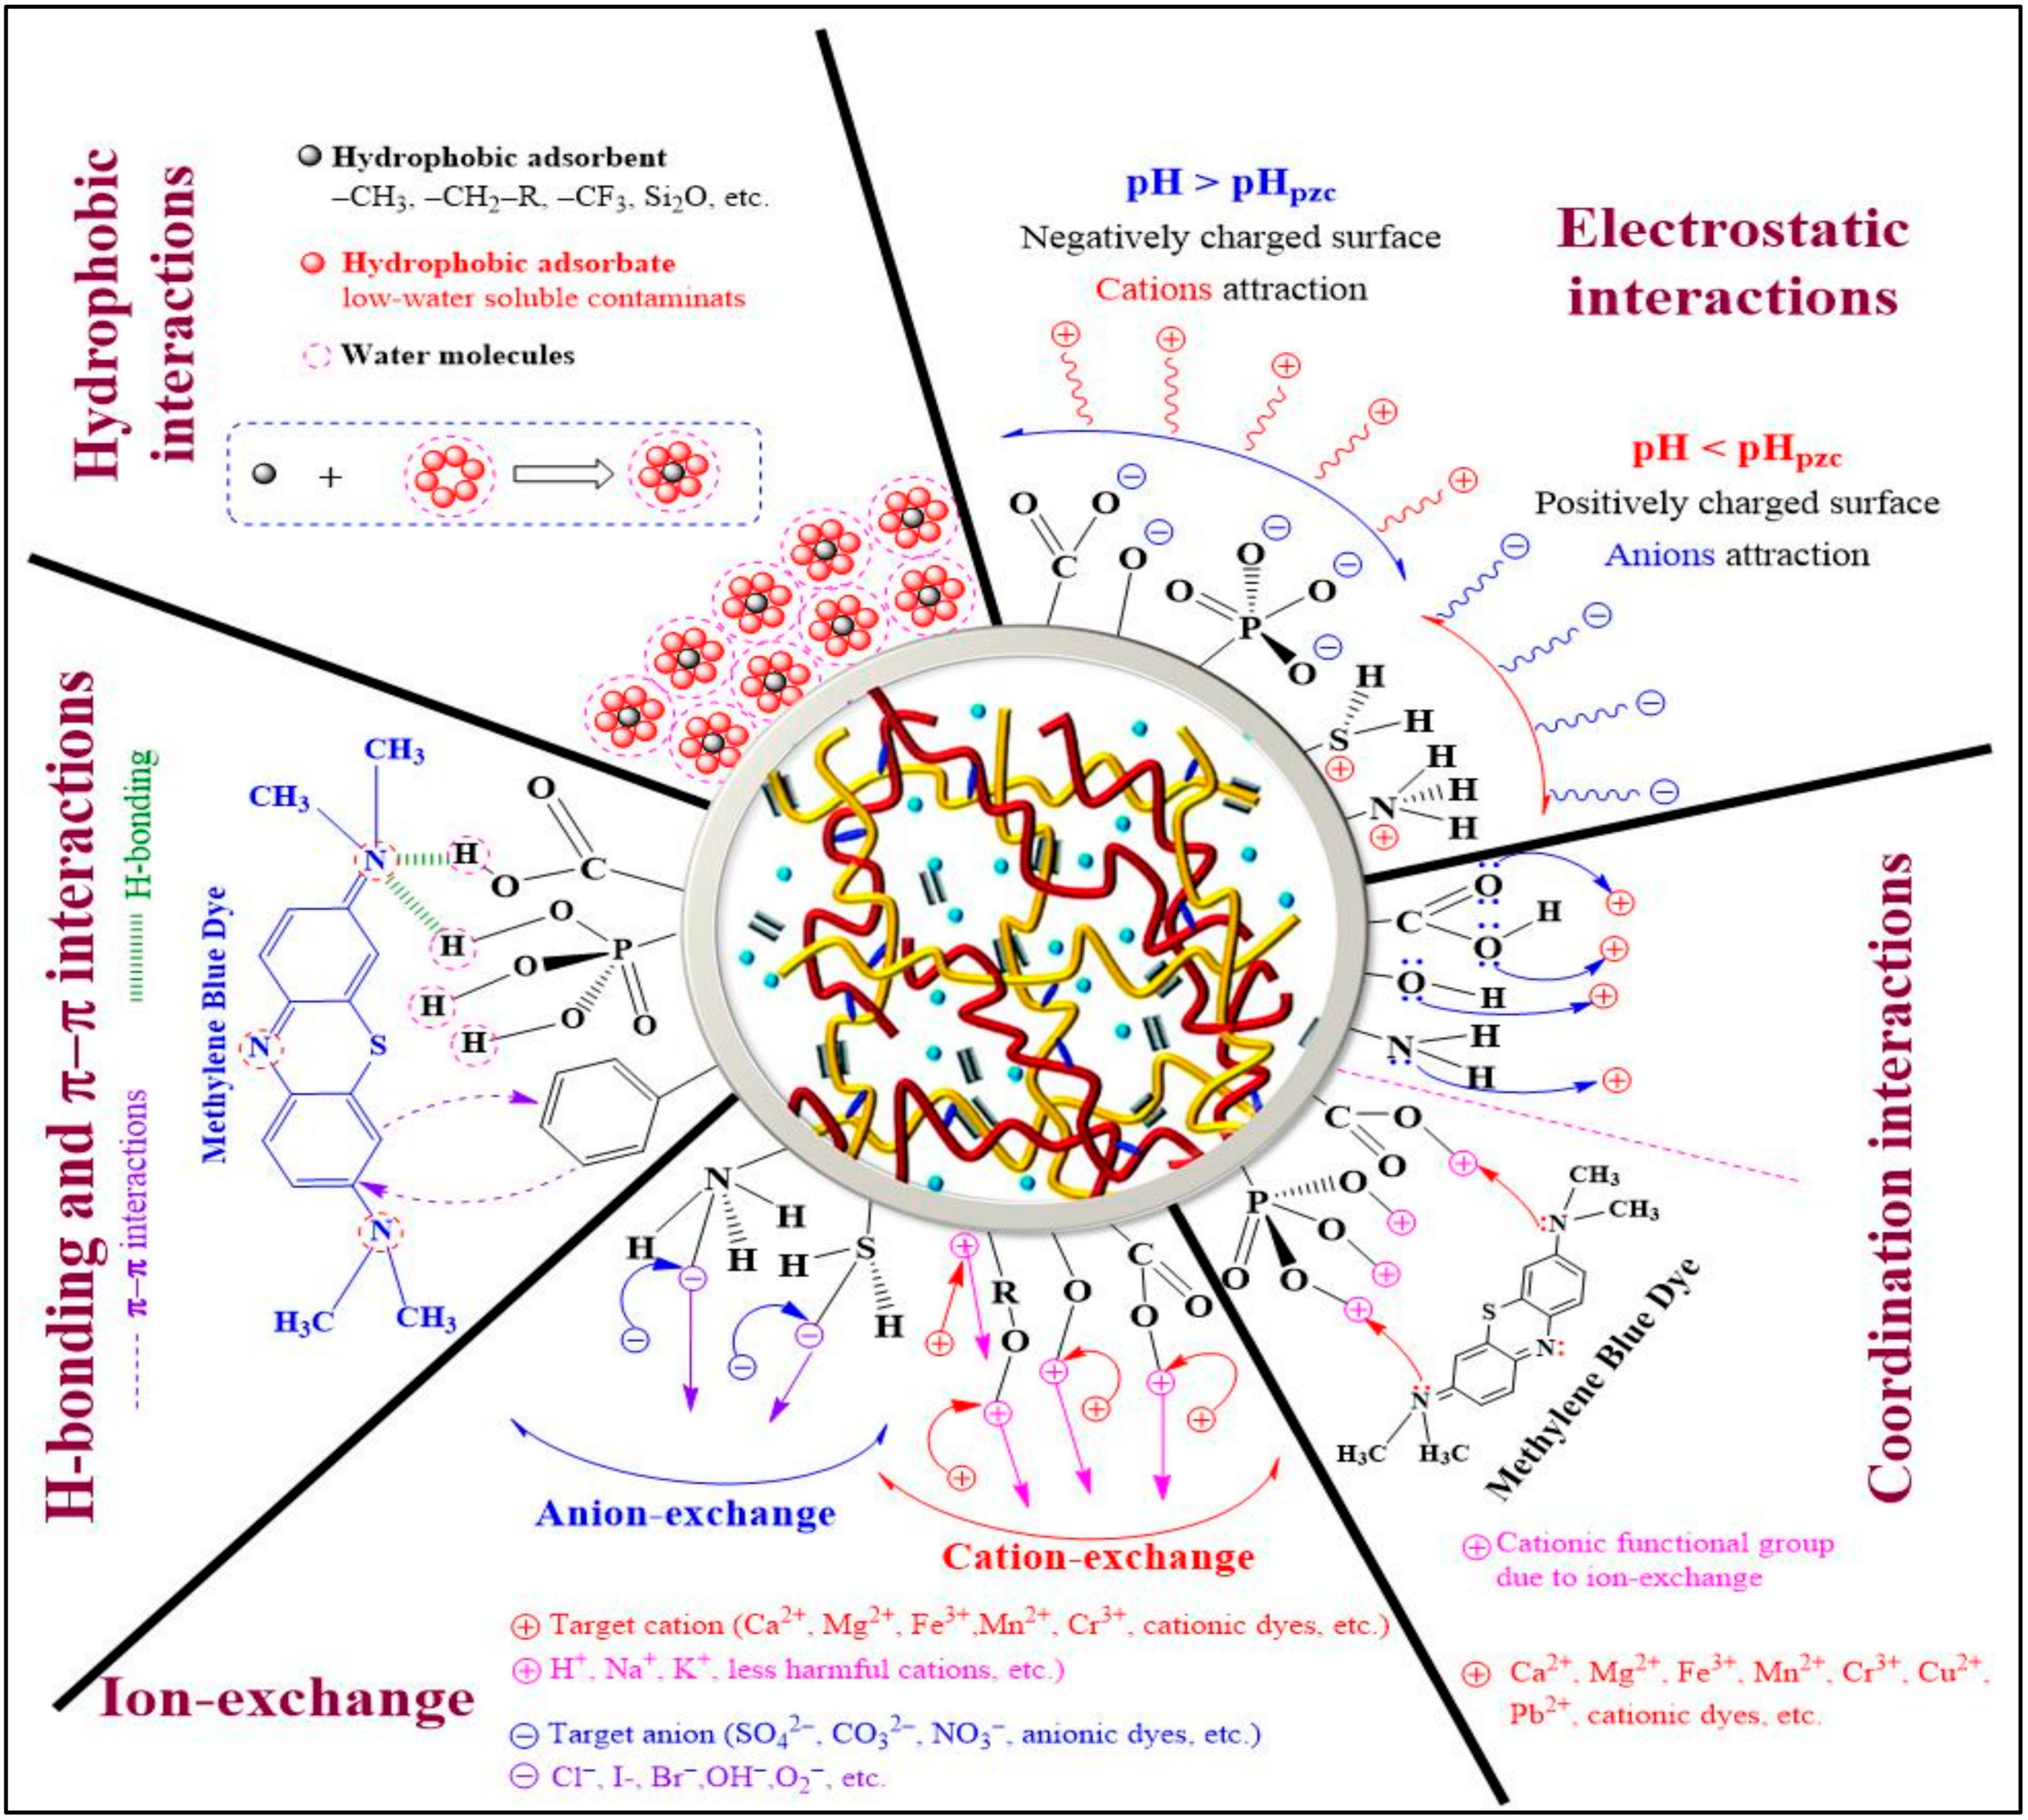 Hydrophobic
interactions
Hydrophobic adsorbent
–CH₃, –CH₂–R, –CF₃, Si₂O, etc.
Hydrophobic adsorbate
low-water soluble contaminats
Water molecules
+
pH > pHpzc
Negatively charged surface
Cations attraction
Electrostatic
interactions
pH < pHpzc
Positively charged surface
Anions attraction
O
C
O
⊖
O
⊖
O
P
O
⊖
O
⊖
O
⊖
S
H
H
⊕
N
H
H
H
⊕
H-bonding and π–π interactions
H-bonding
π–π interactions
Methylene Blue Dye
CH₃
CH₃
N
N
S
N
H₃C
CH₃
H
O
C
O
H
O
H
O
P
H
O
O
Coordination interactions
C
O
O
H
O
H
N
H
H
C
O
O
P
O
O
O
O
CH₃
CH₃
N
S
N:
N
H₃C
H₃C
Methylene Blue Dye
⊕ Cationic functional group
due to ion-exchange
⊕ Ca²⁺, Mg²⁺, Fe³⁺, Mn²⁺, Cr³⁺, Cu²⁺,
Pb²⁺, cationic dyes, etc.
N
H
H
H
S
H
H
R
O
O
C
O
O
Anion-exchange
Cation-exchange
Ion-exchange
⊕ Target cation (Ca²⁺, Mg²⁺, Fe³⁺,Mn²⁺, Cr³⁺, cationic dyes, etc.)
⊕ H⁺, Na⁺, K⁺, less harmful cations, etc.)
⊖ Target anion (SO₄²⁻, CO₃²⁻, NO₃⁻, anionic dyes, etc.)
⊖ Cl⁻, I-, Br⁻,OH⁻,O₂⁻, etc.